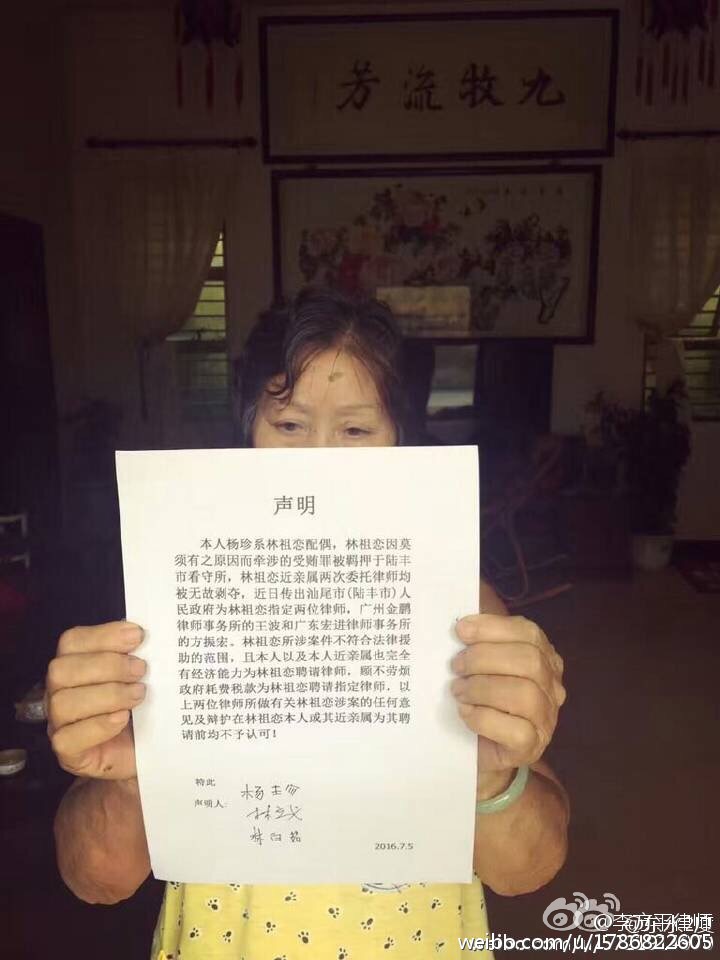 芳流牧九
声明
本人杨珍系林祖恋配偶，林祖恋因莫
须有之原因而牵涉的受贿罪被羁押于陆丰
市看守所，林祖恋近亲属两次委托律师均
被无故剥夺，近日传出汕尾市(陆丰市)人
民政府为林祖恋指定两位律师，广州金鹏
律师事务所的王波和广东宏进律师事务所
的方振宏。林祖恋所涉案件不符合法律援
助的范围，且本人以及本人近亲属也完全
有经济能力为林祖恋聘请律师，顾不劳烦
政府耗费税款为林祖恋聘请指定律师，以
上两位律师所做有关林祖恋涉案的任何意
见及辩护在林祖恋本人或其近亲属为其聘
请前均不予认可！
特此
声明人：
杨珍
2016.7.5
@李方平律师
weibo.com/u/1786822605